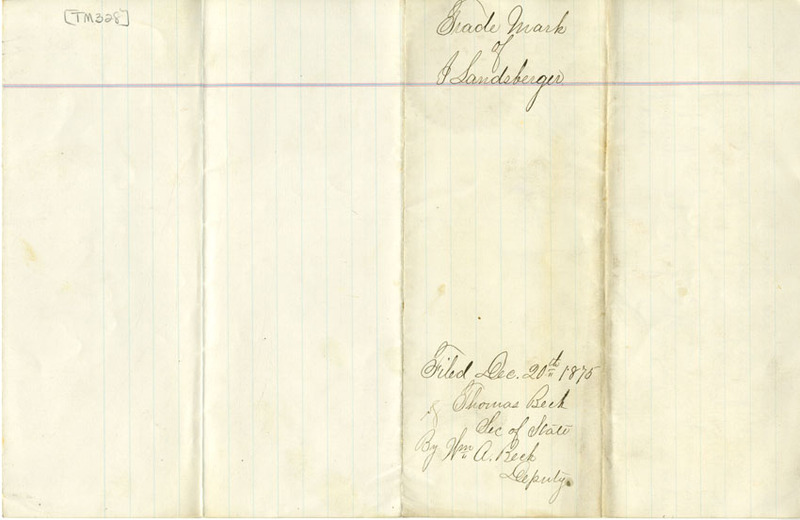 [TM328]
Trade Mark
of
I Landsberger
Filed Dec. 20th 1875
Thomas Beck
Sec of State
By Wm A. Beck
Deputy